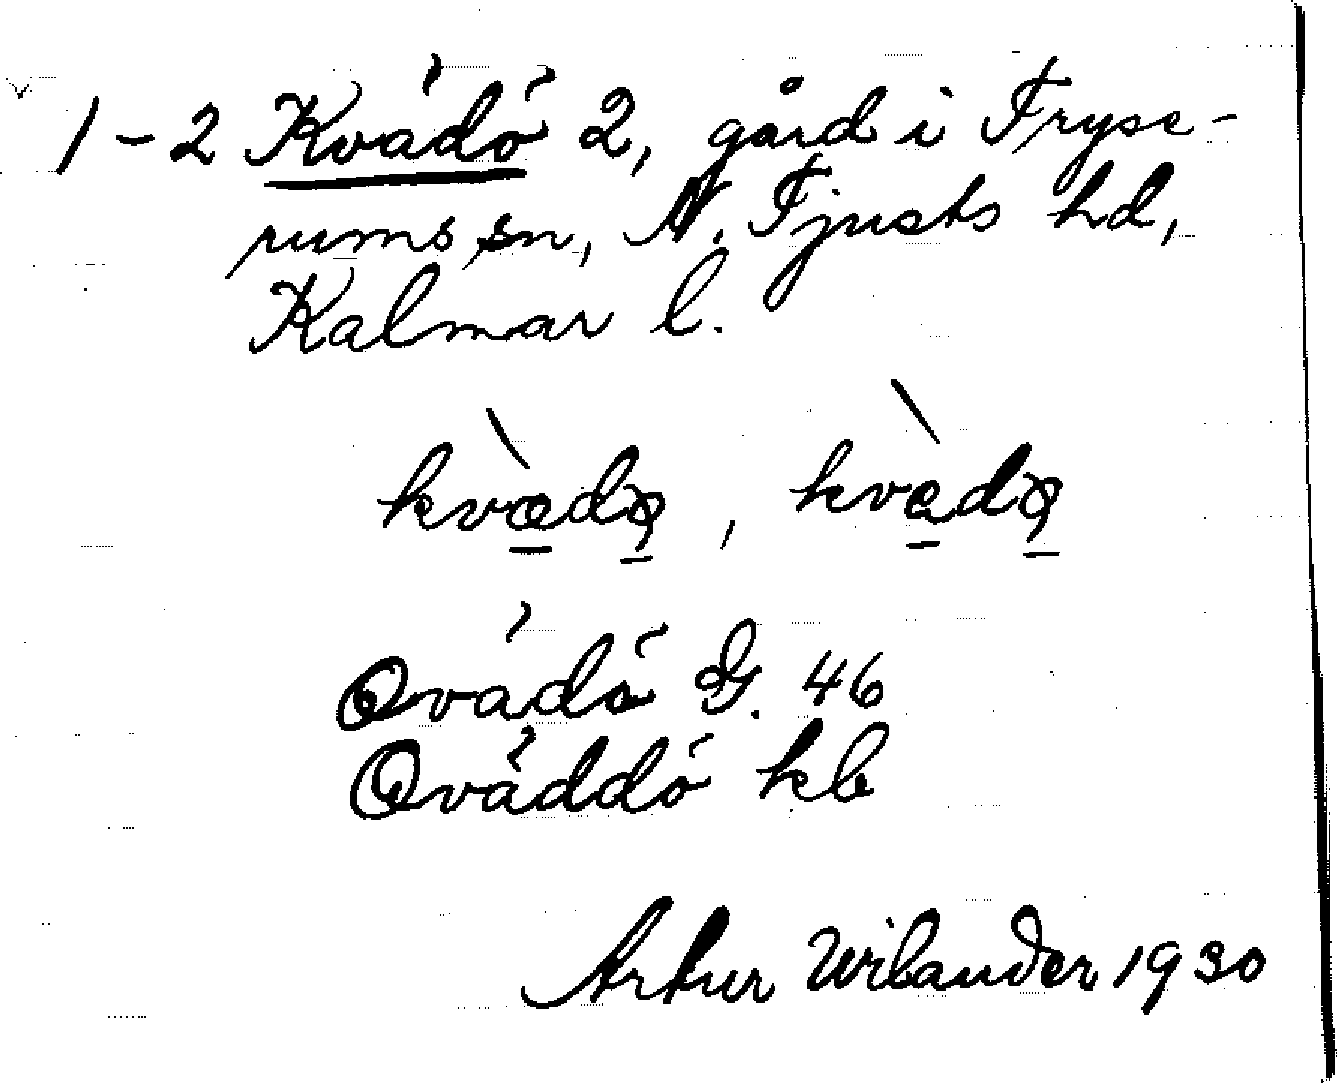 1-2 Kvädö 2, gård i Tryse-
rums sn, N. Tjusts hd,
Kalmar l.
kvædø, kvædø
Qvädö G. 46
Qväddö kb
Artur Wilander 1930